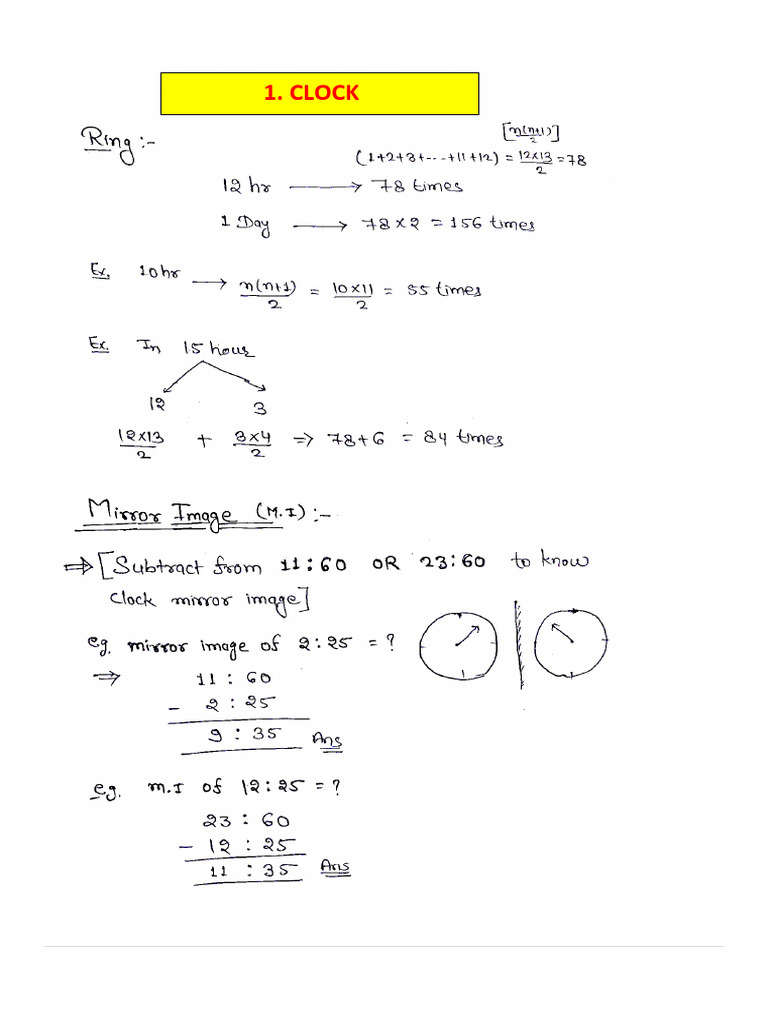 1. CLOCK
Ring :-
[n(n+1)/2]
(1+2+3+---+11+12) = 12×13/2 = 78
12 hr ⟶ 78 times
1 Day ⟶ 78 × 2 = 156 times
Ex. 10 hr ⟶ n(n+1)/2 = 10×11/2 = 55 times
Ex. In 15 hour
12 3
12×13/2 + 3×4/2 => 78+6 = 84 times
Mirror Image (M.I) :-
⇒ [Subtract from 11:60 OR 23:60 to know
clock mirror image]
eg. mirror image of 2:25 = ?
⇒ 11 : 60
- 2 : 25
9 : 35 Ans
eg. M.I of 12:25 = ?
23 : 60
- 12 : 25
11 : 35 Ans